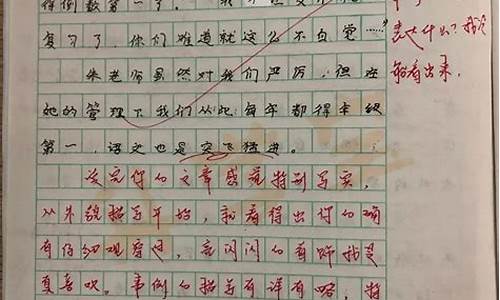 得倒数第一了。
复习了,你们难道就这么不自觉……”
朱老师虽然对我们严厉,但在
她的管理下我们从此每年都得年级
第一,语文也是突飞猛进。
读完你的文章感觉特别写实,
从外貌描写开始,就看得出你的确
有仔细观察过,亮闪闪的
真喜欢。事例的描写有详有略,
表达什么?我没
能看出来。